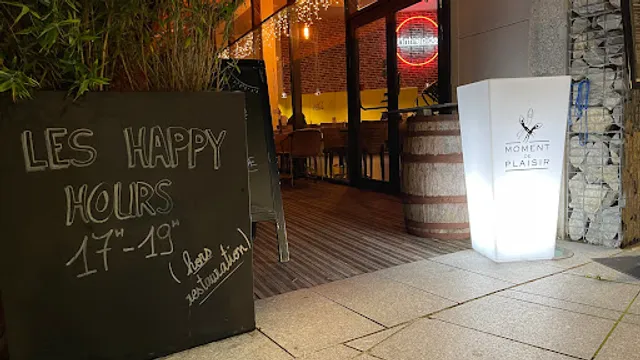 LES HAPPY
HOURS
17H-19H
(hors
restauration)
MOMENT
DE
PLAISIR